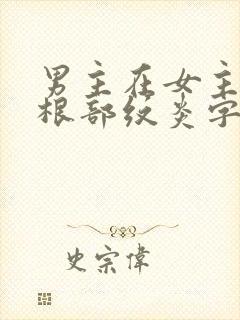 男主在女主
根部纹炎字
史宗偉